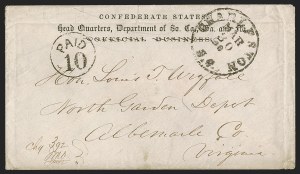 CONFEDERATE STATES
Head Quarters, Department of So. Ca., Ga. and
OFFICIAL BUSINESS.
CHARLESTON
S.C.
PAID
10
Hon. Louis T. Wigfall
North Garden Depot
Albemarle Co.
Virginia
Chg